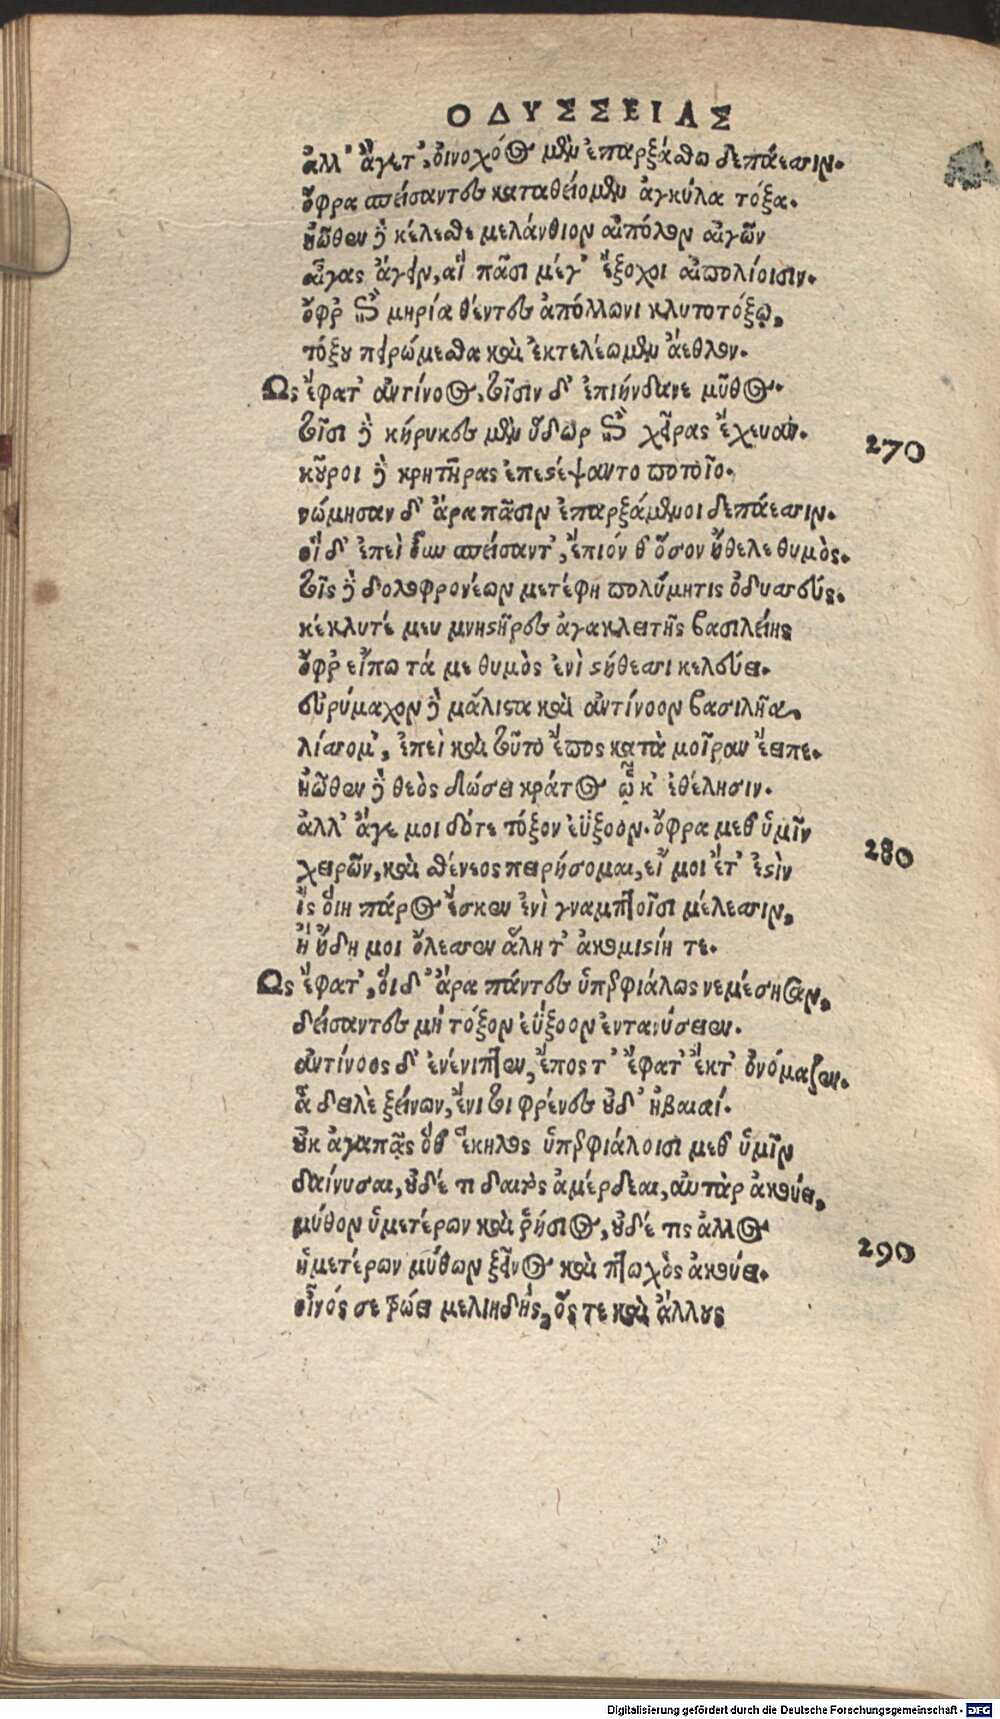 ΟΔΥΣΣΕΙΑΣ
ἀλλ' ἄγετ', οἰνοχόος μὲν ἐπαρξάσθω δεπάεσσιν.
ὄφρα σπείσαντες καταθείομεν ἀγκύλα τόξα.
ἠῶθεν δὲ κέλεσθε μελάνθιον αἰπόλον αἰγῶν
αἶγας ἄγειν, αἳ πᾶσι μέγ' ἔξοχοι αἰπολίοισιν.
ὄφρ' ἐπὶ μηρία θέντες ἀπόλλωνι κλυτοτόξῳ,
τόξου πειρώμεσθα καὶ ἐκτελέωμεν ἄεθλον.
Ως ἔφατ' ἀντίνοος, τοῖσιν δ' ἐπιήνδανε μῦθος.
τοῖσι δὲ κήρυκες μὲν ὕδωρ ἐπὶ χεῖρας ἔχευαν.
270
κοῦροι δὲ κρητῆρας ἐπεστέψαντο ποτοῖο.
νώμησαν δ' ἄρα πᾶσιν ἐπαρξάμενοι δεπάεσσιν.
οἳ δ' ἐπεὶ οὖν σπεῖσαντ', ἔπιόν θ' ὅσον ἤθελε θυμὸς.
τοῖς δὲ δολοφρονέων μετέφη πολύμητις ὀδυσσεύς.
κέκλυτέ μευ μνηστῆρες ἀγακλειτῆς βασιλείης
ὄφρ' εἴπω τά με θυμὸς ἐνὶ στήθεσσι κελεύει.
εὐρύμαχον δὲ μάλιστα καὶ ἀντίνοον βασιλῆα,
λίσσομ', ἐπεὶ καὶ τοῦτο ἔπος κατὰ μοῖραν ἔειπε.
ἠῶθεν δὲ θεὸς δώσει κράτος ᾧ κ' ἐθέλησιν.
ἀλλ' ἄγε μοι δότε τόξον ἐΰξοον. ὄφρα μεθ' ὑμῖν
280
χειρῶν, καὶ σθένεος πειρήσομαι, εἴ μοι ἔτ' ἐστὶν
ἲς οἵη πάρος ἔσκεν ἐνὶ γναμπτοῖσι μέλεσσιν,
ἢ ἤδη μοι ὄλεσσεν ἄλη τ' ἀκομιστίη τε.
Ως ἔφατ', οἱ δ' ἄρα πάντες ὑπερφιάλως νεμέσησαν,
δείσαντες μὴ τόξον ἐΰξοον ἐντανύσειεν.
ἀντίνοος δ' ἐνένιπτεν, ἔπος τ' ἔφατ' ἔκτ' ὀνόμαζεν.
ἆ δειλὲ ξείνων, ἔνι τοι φρένες οὐδ' ἠβαιαί.
οὐκ ἀγαπᾷς ὅθ' ἕκηλος ὑπερφιάλοισι μεθ' ὑμῖν
δαίνυσαι, οὐδέ τι δαιτὸς ἀμέρδεαι, αὐτὰρ ἀκούει,
μύθον ὑμετέρων καὶ ῥήσιος, οὐδέ τις ἀλλος
290
ἡμετέρων μύθων ξεῖνος καὶ πτωχὸς ἀκούει.
οἶνός σε τρώει μελιηδής, ὅς τε καὶ ἄλλους
Digitalisierung gefördert durch die Deutsche Forschungsgemeinschaft - DFG